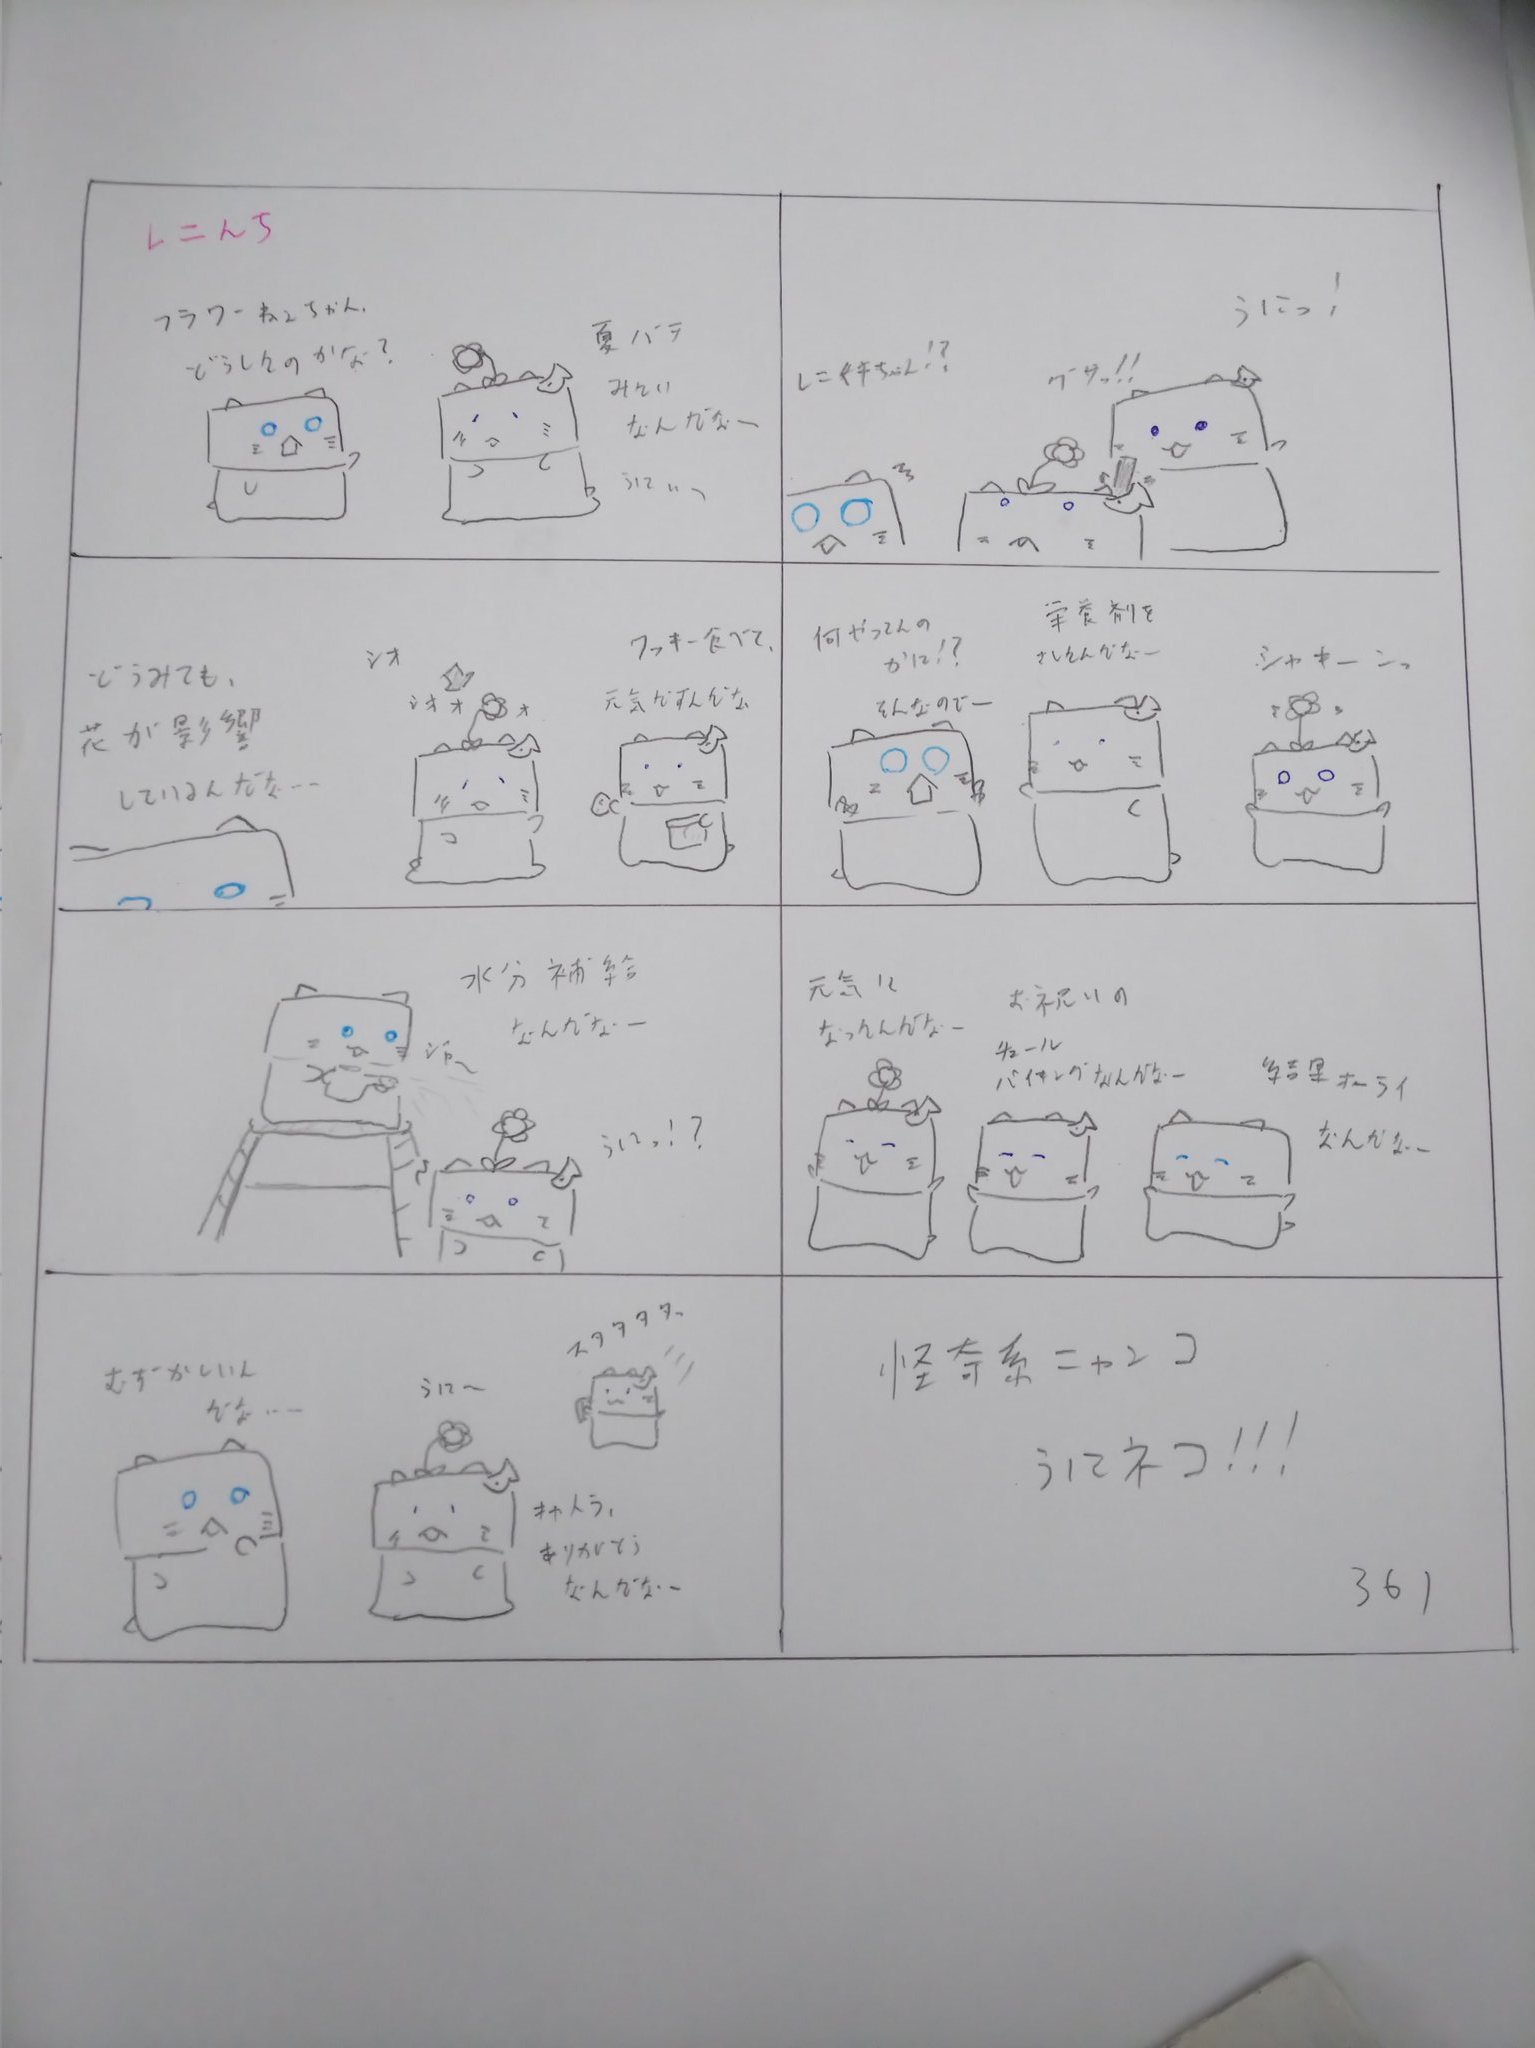 フラワーねこちゃん、
どうしたのかな?
夏バテ
みたい
なんだなー
どうみても、
花が影響
しているんだな…
シオ
シオオォ
クッキー食べて、
元気だすんだな
水分補給
なんだなー
ジャ〜
うにっ!?
むずかしいん
だな……
うに〜
スタタタタ
キャトラ、
ありがとう
なんだなー
うにっ!
グサっ!!
何やってんの
かに!?
栄養剤を
さしたんだなー
シャキーンっ
元気に
なったんだなー
お祝いの
チュール
バイキングなんだなー
結果オーライ
なんだなー
怪奇系ニャンコ
うにネコ!!!
361